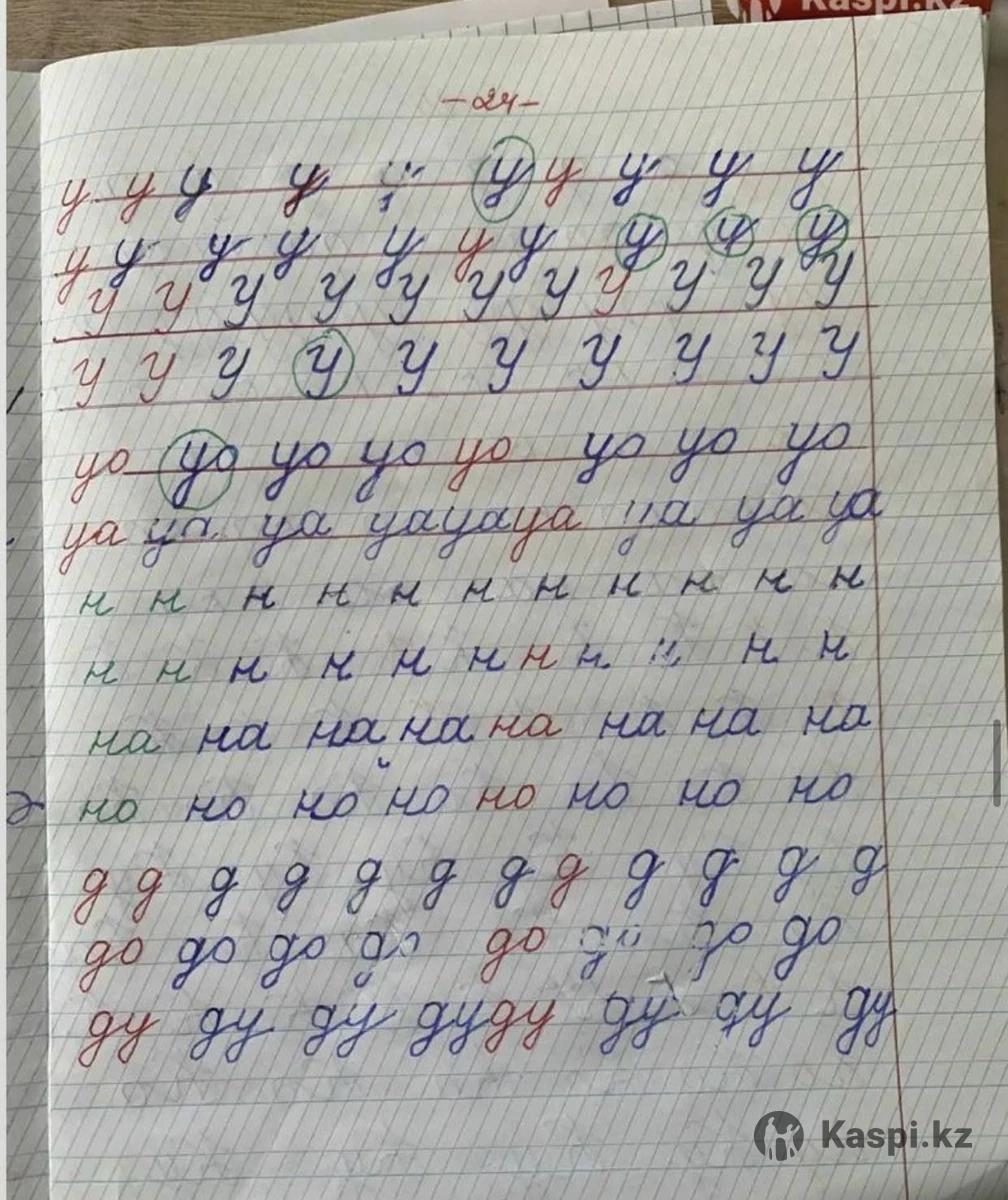 Kaspi.kz
-24-
у у у у у у у у у у
у у у у у у у у у у
У У У У У У У У У У У
У У У У У У У У У У
уо уо уо уо уо уо уо уо
уа уа уа уа уа уа уа уа уа
н н н н н н н н н н н
н н н н н н н н н н н
на на на на на на на на
но но но но но но но но
д д д д д д д д д д д д
до до до до до до до до
ду ду ду ду ду ду ду ду
Kaspi.kz